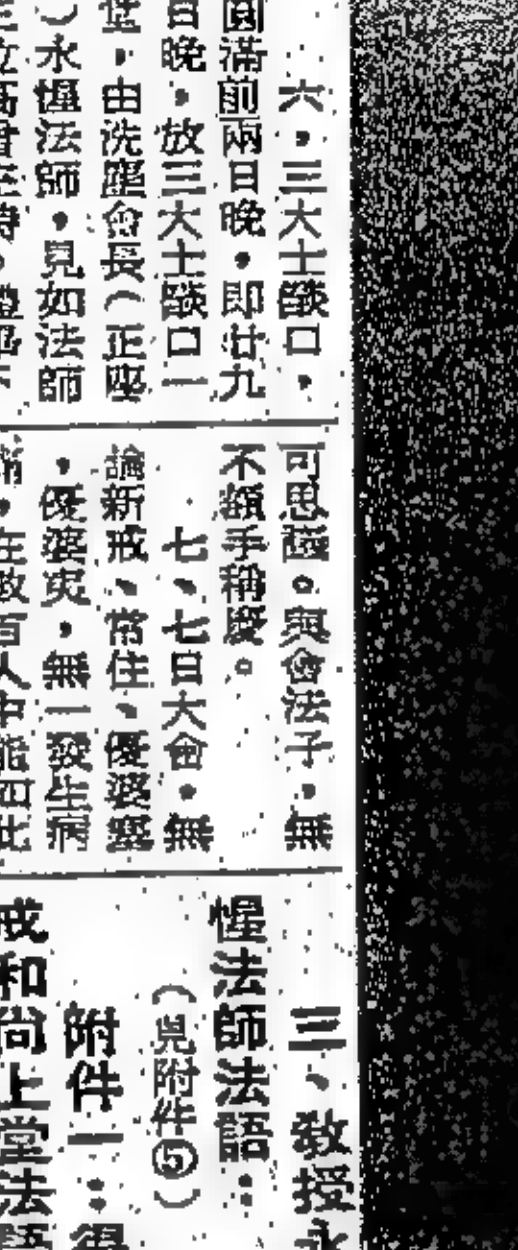 六，三大士燄口，
圓滿前兩日晚，即廿九
日晚，放三大士燄口一
堂，由洗塵會長（正座
）永惺法師，見如法師
可思議。與會法子，無
不額手稱慶。
七、七日大會，無
論新戒、常住、優婆塞
，優婆夷，無一發生病
，在數百人中能如此
三、教授永
惺法師法語：
（見附件⑤）
附件一：得
戒和尚上堂法語